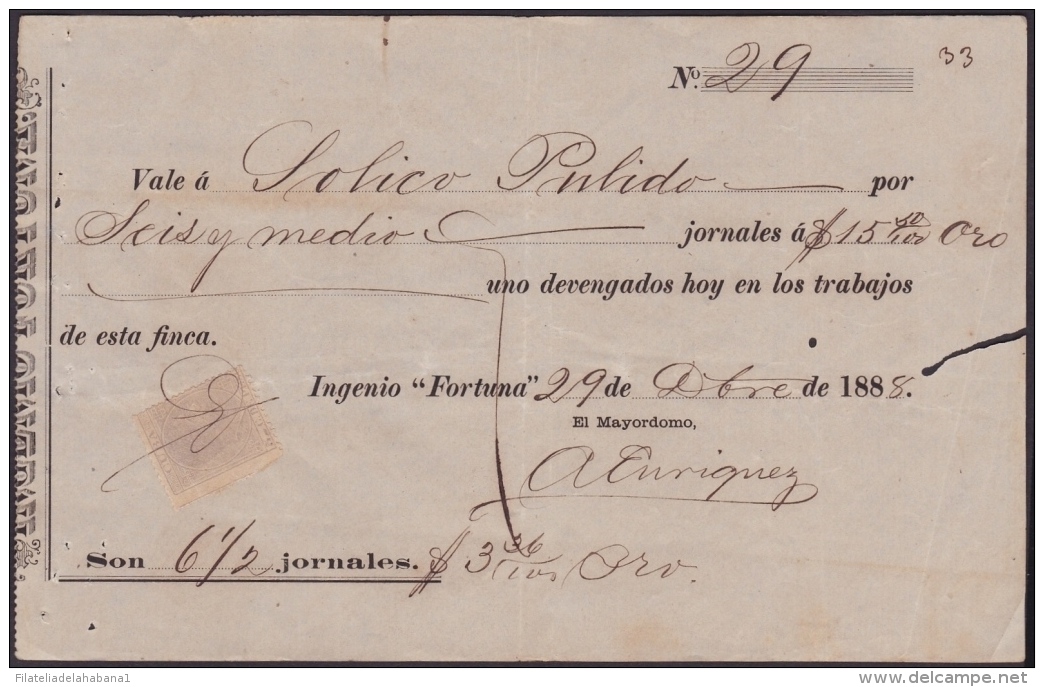 33
Nº. 29
Vale á Solico Pulido por
Seis y medio jornales á $15 50/100 Oro
uno devengados hoy en los trabajos
de esta finca.
Ingenio “Fortuna” 29 de Dbre de 1888.
El Mayordomo,
A Enriquez
Son 6 1/2 jornales. $3 36/100 Oro.
Filateliadelahabana1
delcampe.net